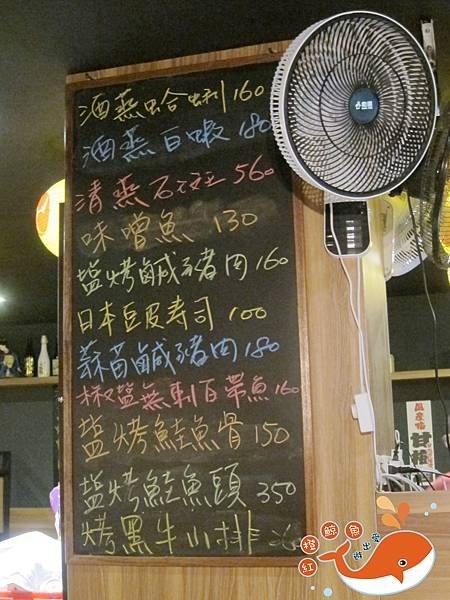 酒蒸蛤蜊160
酒蒸白蝦180
清蒸石斑560
味噌魚 130
塩烤鹹豬肉160
日本豆皮寿司100
蒜苗鹹豬肉180
椒塩無刺白帶魚160
塩烤鮭魚骨150
塩烤鮭魚頭 350
烤黑牛小排
橙鯨角
紅遊出愛